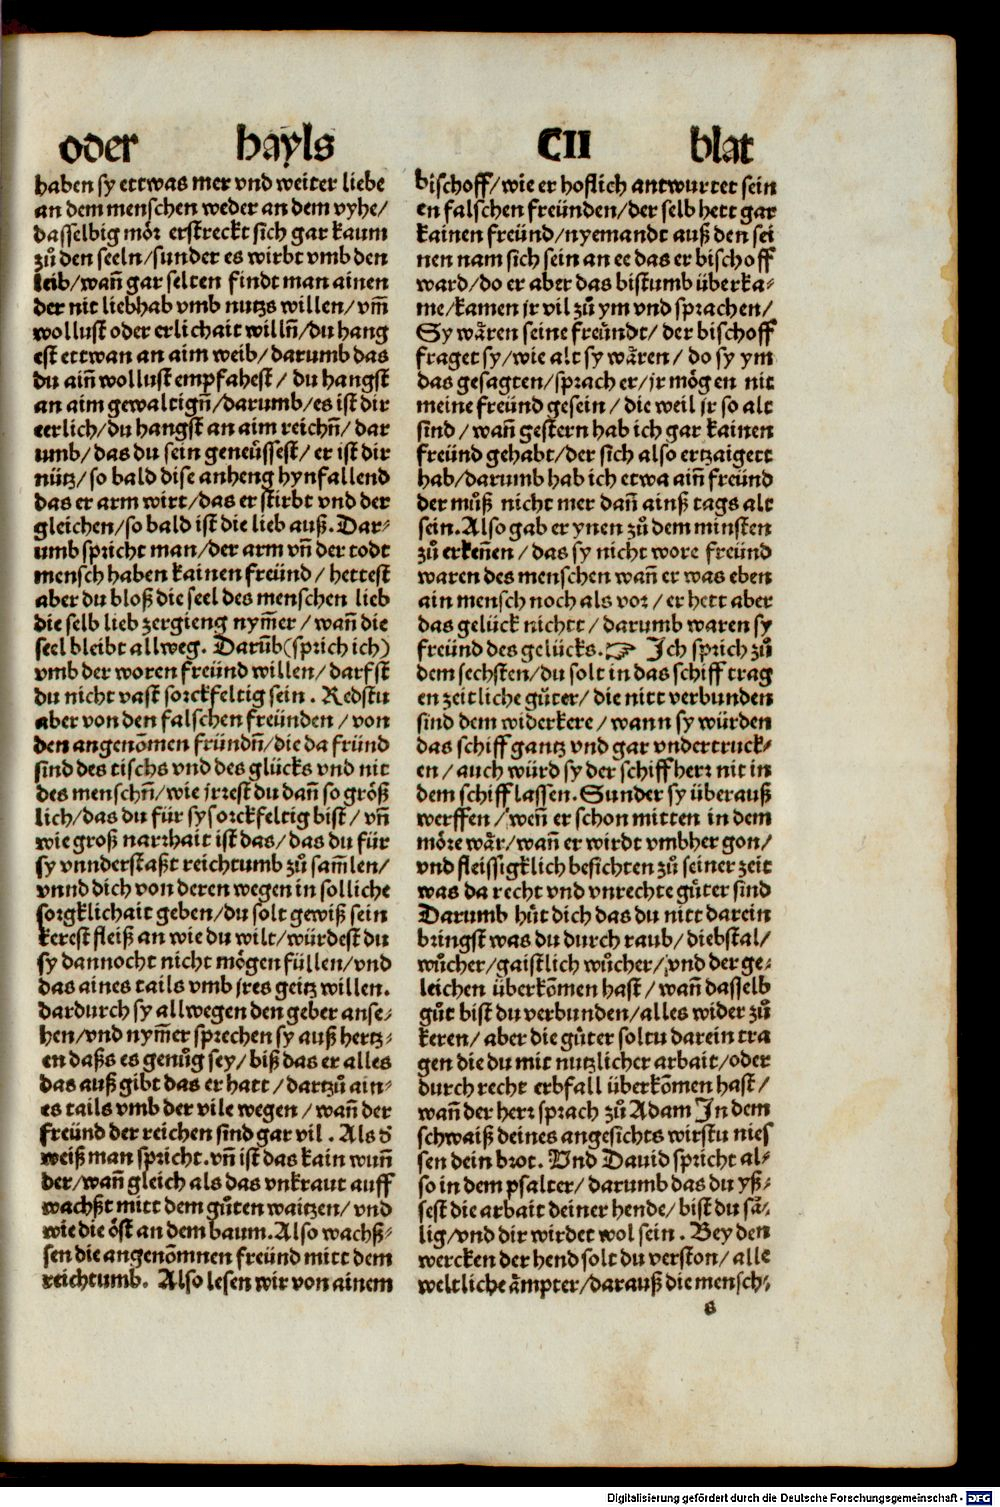 oder hayls CII blat
haben sy ettwas mer vnd weiter liebe
an dem menschen weder an dem vyhe/
dasselbig mör erstreckt sich gar kaum
zů den seeln/sunder es wirbt vmb den
leib/wañ gar selten findt man ainen
der nit liebhab vmb nutzs willen/vm̄
wollust oder erlichait willn̄/du hang
est ettwan an aim weib/darumb das
du ain̄ wollust empfahest/ du hangst
an aim gewaltign̄/darumb/es ist dir
eerlich/du hangst an aim reichn̄/ dar
umb/das du sein geneüssest/ er ist dir
nütz/so bald dise anheng hynfallend
das er arm wirt/das er stirbt vnd der
gleichen/so bald ist die lieb auß. Dar⸗
umb spricht man/der arm vn̄ der todt
mensch haben kainen freünd/ hettest
aber du bloß die seel des menschen lieb
die selb lieb zergieng nym̄er/ wan̄ die
seel bleibt allweg. Darūb(sprich ich)
vmb der woren freünd willen/ darfst
du nicht vast sorckfeltig sein. Redstu
aber von den falschen freünden/ von
den angenōmen fründn̄/die da fründ
sind des tischs vnd des glücks vnd nit
des menschn̄/wie jrrest du dan̄ so größ
lich/das du für sy sorckfeltig bist/ vn̄
wie groß narrhait ist das/das du für
sy vnnderstaßt reichtumb zů sam̄len/
vnnd dich von deren wegen in solliche
sorgklichait geben/du solt gewiß sein
kerest fleiß an wie du wilt/würdest du
sy dannocht nicht mögen füllen/vnd
das aines tails vmb jres geitz willen.
dardurch sy allwegen den geber anse⸗
hen/vnd nym̄er sprechen sy auß hertz⸗
en daßs es genůg sey/ biß das er alles
das auß gibt das er hatt/ dartzů ain⸗
es tails vmb der vile wegen/ wan̄ der
freünd der reichen sind gar vil. Als d̄
weiß man spricht. vn̄ ist das kain wun̄
der/wan̄ gleich als das vnkraut auff
wachßt mitt dem gůten waitzen/ vnd
wie die öst an dem baum. Also wachß⸗
sen die angenōmnen freünd mitt dem
reichtumb. Also lesen wir von ainem
bischoff/wie er hoflich antwurtet sein
en falschen freünden/der selb hett gar
kainen freünd/nyemandt auß den sei
nen nam sich sein an ee das er bischoff
ward/do er aber das bistumb überka⸗
me/kamen jr vil zů ym vnd sprachen/
Sy wären seine freündt/ der bischoff
fraget sy/wie alt sy wären/ do sy ym
das gesagten/sprach er/jr mögen nit
meine freünd gesein/ die weil jr so alt
sind/ wan̄ gestern hab ich gar kainen
freünd gehabt/der sich also ertzaigett
hab/darumb hab ich etwa ain̄ freünd
der můß nicht mer dan̄ ainß tags alt
sein. Also gab er ynen zů dem minsten
zů erken̄en/ das sy nicht wore freünd
waren des menschen wan̄ er was eben
ain mensch noch als vor/ er hett aber
das gelück nichtt/ darumb waren sy
freünd des gelücks.☞ Ich sprich zů
dem sechsten/du solt in das schiff trag
en zeitliche gůter/ die nitt verbunden
sind dem widerkere/ wann sy würden
das schiff gantz vnd gar vndertruck⸗
en/ auch würd sy der schiff herr nit in
dem schiff lassen. Sunder sy überauß
werffen/ wen̄ er schon mitten in dem
möre wär/ wan̄ er wirdt vmbher gon/
vnd fleissigklich besichten zů seiner zeit
was da recht vnd vnrechte gůter sind
Darumb hüt dich das du nitt darein
bringst was du durch raub/ diebstal/
wůcher/gaistlich wůcher/ vnd der ge⸗
leichen überkōmen hast/ wan̄ dasselb
gůt bist du verbunden/alles wider zů
keren/ aber die gůter soltu darein tra
gen die du mit nutzlicher arbait/oder
durch recht erbfall überkōmen hast/
wan̄ der herr sprach zů Adam In dem
schwaiß deines angesichts wirstu nies
sen dein brot. Vnd Dauid spricht al⸗
so in dem psalter/ darumb das du yß⸗
sest die arbait deiner hende/ bist du sä⸗
lig/vnd dir wirdet wol sein. Bey den
wercken der hend solt du verston/ alle
weltliche ämpter/darauß die mensch⸗
s
Digitalisierung gefördert durch die Deutsche Forschungsgemeinschaft - DFG